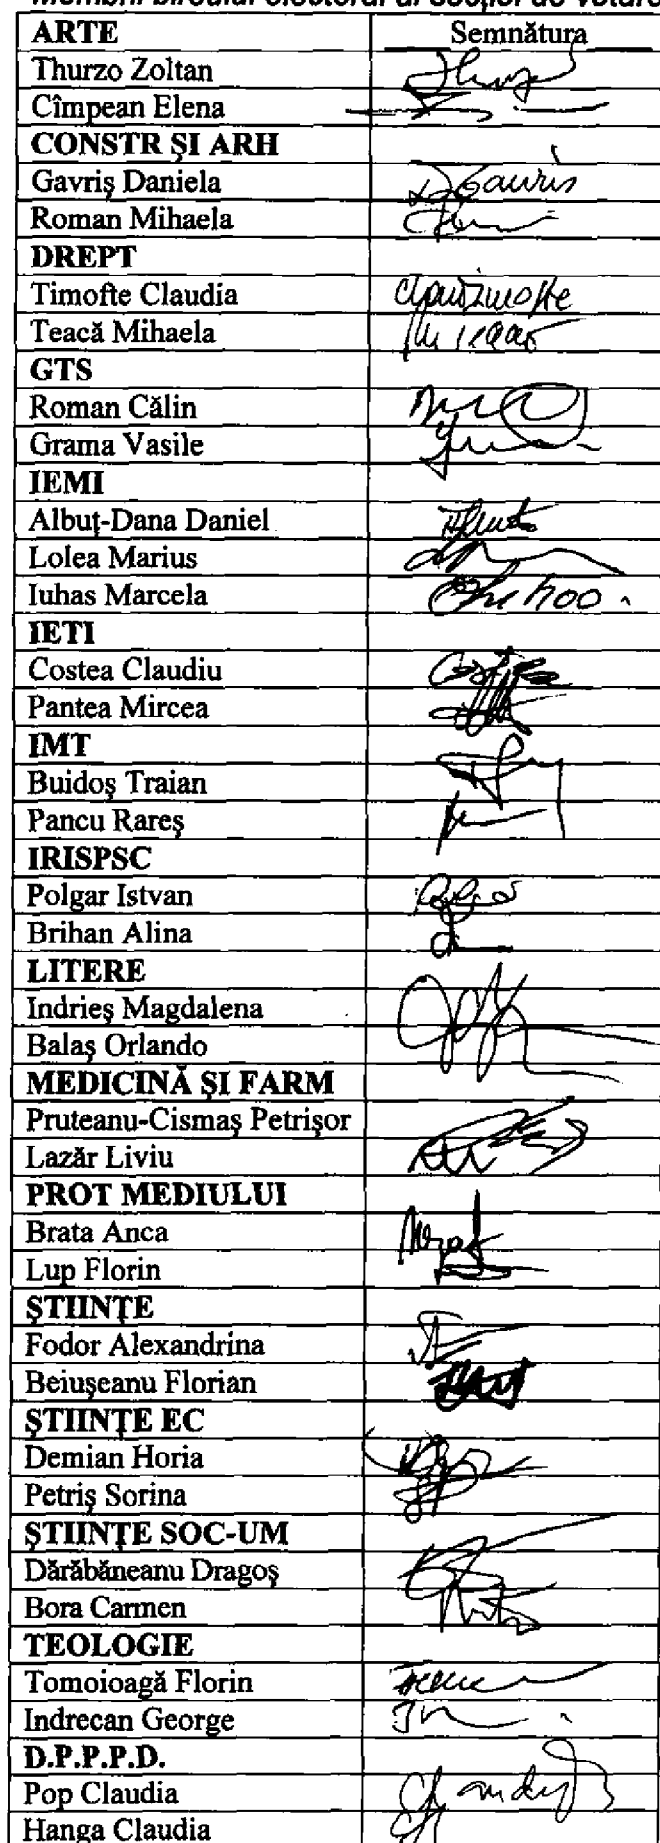 Membrii biroului electoral al secției de votare
ARTE Semnătura
Thurzo Zoltan
Cîmpean Elena
CONSTR ŞI ARH
Gavriş Daniela
Roman Mihaela
DREPT
Timofte Claudia
Teacă Mihaela
GTS
Roman Călin
Grama Vasile
IEMI
Albuţ-Dana Daniel
Lolea Marius
Iuhas Marcela
IETI
Costea Claudiu
Pantea Mircea
IMT
Buidoş Traian
Pancu Rareş
IRISPSC
Polgar Istvan
Brihan Alina
LITERE
Indrieş Magdalena
Balaş Orlando
MEDICINĂ ŞI FARM
Pruteanu-Cismaş Petrişor
Lazăr Liviu
PROT MEDIULUI
Brata Anca
Lup Florin
ŞTIINŢE
Fodor Alexandrina
Beiuşeanu Florian
ŞTIINŢE EC
Demian Horia
Petriş Sorina
ŞTIINŢE SOC-UM
Dărăbăneanu Dragoş
Bora Carmen
TEOLOGIE
Tomoioagă Florin
Indrecan George
D.P.P.P.D.
Pop Claudia
Hanga Claudia